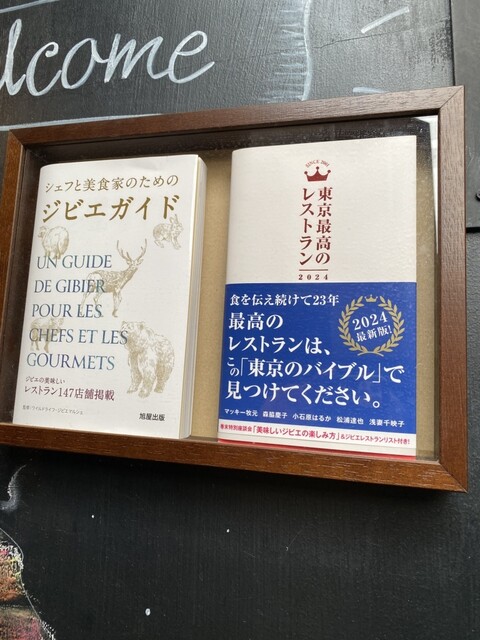 lcome
シェフと美食家のための
ジビエガイド
UN GUIDE
DE GIBIER
POUR LES
CHEFS ET LES
GOURMETS
ジビエの美味しい
レストラン147店舗掲載
旭屋出版
SINCE 2001
東京最高の
レストラン
2024
食を伝え続けて23年
最高の
レストランは、
この「東京のバイブル」で
見つけてください。
2024
最新版!
マッキー牧元 森脇慶子 小石原はるか 松浦達也 浅妻千映子
巻末特別座談会「美味しいジビエの楽しみ方」&ジビエレストランリスト付き!